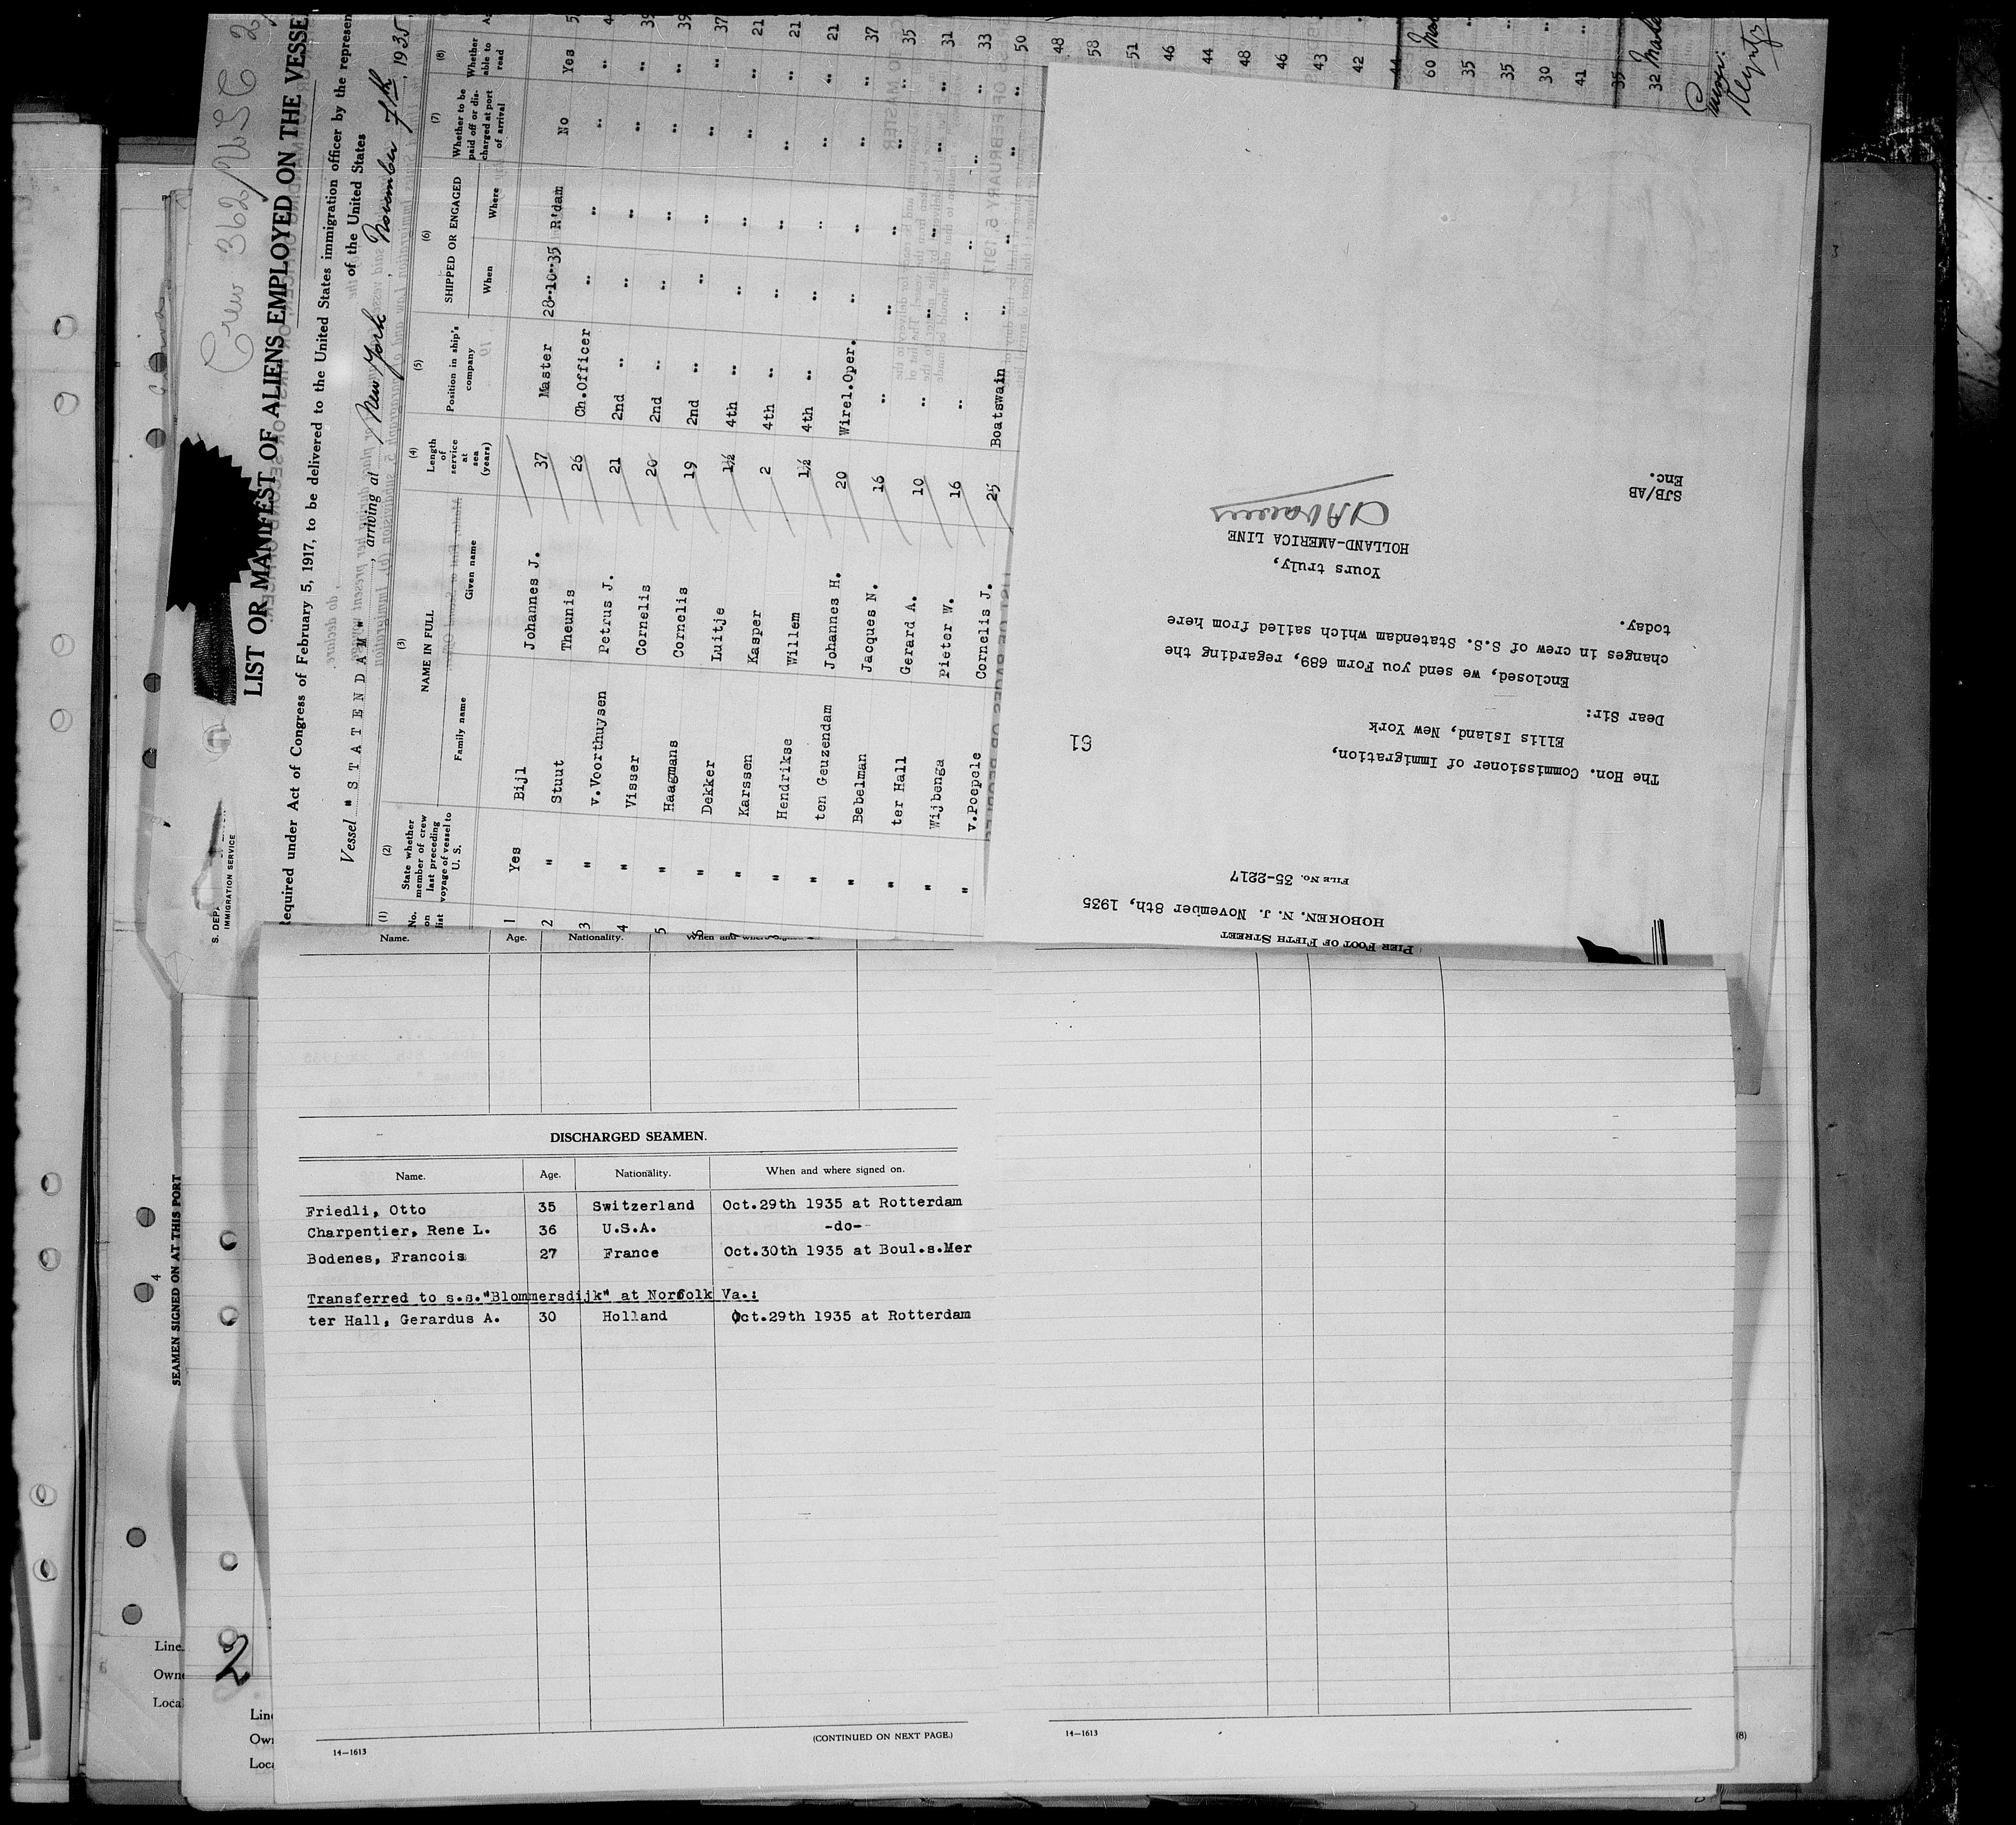 Crew 362/WSC
LIST OR MANIFEST OF ALIENS EMPLOYED ON THE VESSE
Required under Act of Congress of February 5, 1917, to be delivered to the United States immigration officer by the represen
of the United States
Vessel "STATENDAM", arriving at New York, November 7th, 1935
(1) (2) (3) (4) (5) (6) (7) (8)
No. on list
State whether member of crew last preceding voyage of vessel to U. S.
NAME IN FULL
Family name Given name
Length of service at sea (years)
Position in ship's company
SHIPPED OR ENGAGED
When Where
Whether to be paid off or discharged at port of arrival
Whether able to read
1 Yes Bijl Johannes J. 37 Master 28-10-35 R'dam No Yes 5
2 " Stuut Theunis 26 Ch.Officer " " " " 4
3 " v.Voorthuysen Petrus J. 21 2nd " " " " " 39
4 " Visser Cornelis 20 2nd " " " " " 39
5 " Haagmans Cornelis 19 2nd " " " " " 37
6 " Dekker Luitje 1½ 4th " " " " " 21
7 " Karssen Kasper 2 4th " " " " " 21
" Hendrikse Willem 1½ 4th " " " " " 21
" ten Geuzendam Johannes H. 20 Wirel.Oper. " " " " 37
" Bebelman Jacques N. 16 " " " " " 35
" ter Hall Gerard A. 10 " " " " " 31
" Wijbenga Pieter W. 16 " " " " " 33
" v.Poepele Cornelis J. 25 Boatswain " " " " 50
48
58
51
46
44
48
46
43
42
44
60
35
35
30
41
35
32
PIER FOOT OF FIFTH STREET
HOBOKEN. N. J. November 8th, 1935
FILE NO. 35-2217
61
The Hon. Commissioner of Immigration,
Ellis Island, New York
Dear Sir:
Enclosed, we send you Form 689, regarding the
changes in crew of S.S. Statendam which sailed from here
today.
Yours truly,
HOLLAND-AMERICA LINE
SJB/AB
Enc.
IMMIGRATION SERVICE
SEAMEN SIGNED ON AT THIS PORT
4
Name. Age. Nationality. When and where signed
DISCHARGED SEAMEN.
Name. Age. Nationality. When and where signed on.
Friedli, Otto 35 Switzerland Oct.29th 1935 at Rotterdam
Charpentier, Rene L. 36 U.S.A. -do-
Bodenes, Francois 27 France Oct.30th 1935 at Boul.s.Mer
Transferred to s.s."Blommersdijk" at Norfolk Va.:
ter Hall, Gerardus A. 30 Holland Oct.29th 1935 at Rotterdam
Line
Owne
Local
2
Line
Own
Loca
(CONTINUED ON NEXT PAGE.)
14—1613
14—1613
(8)